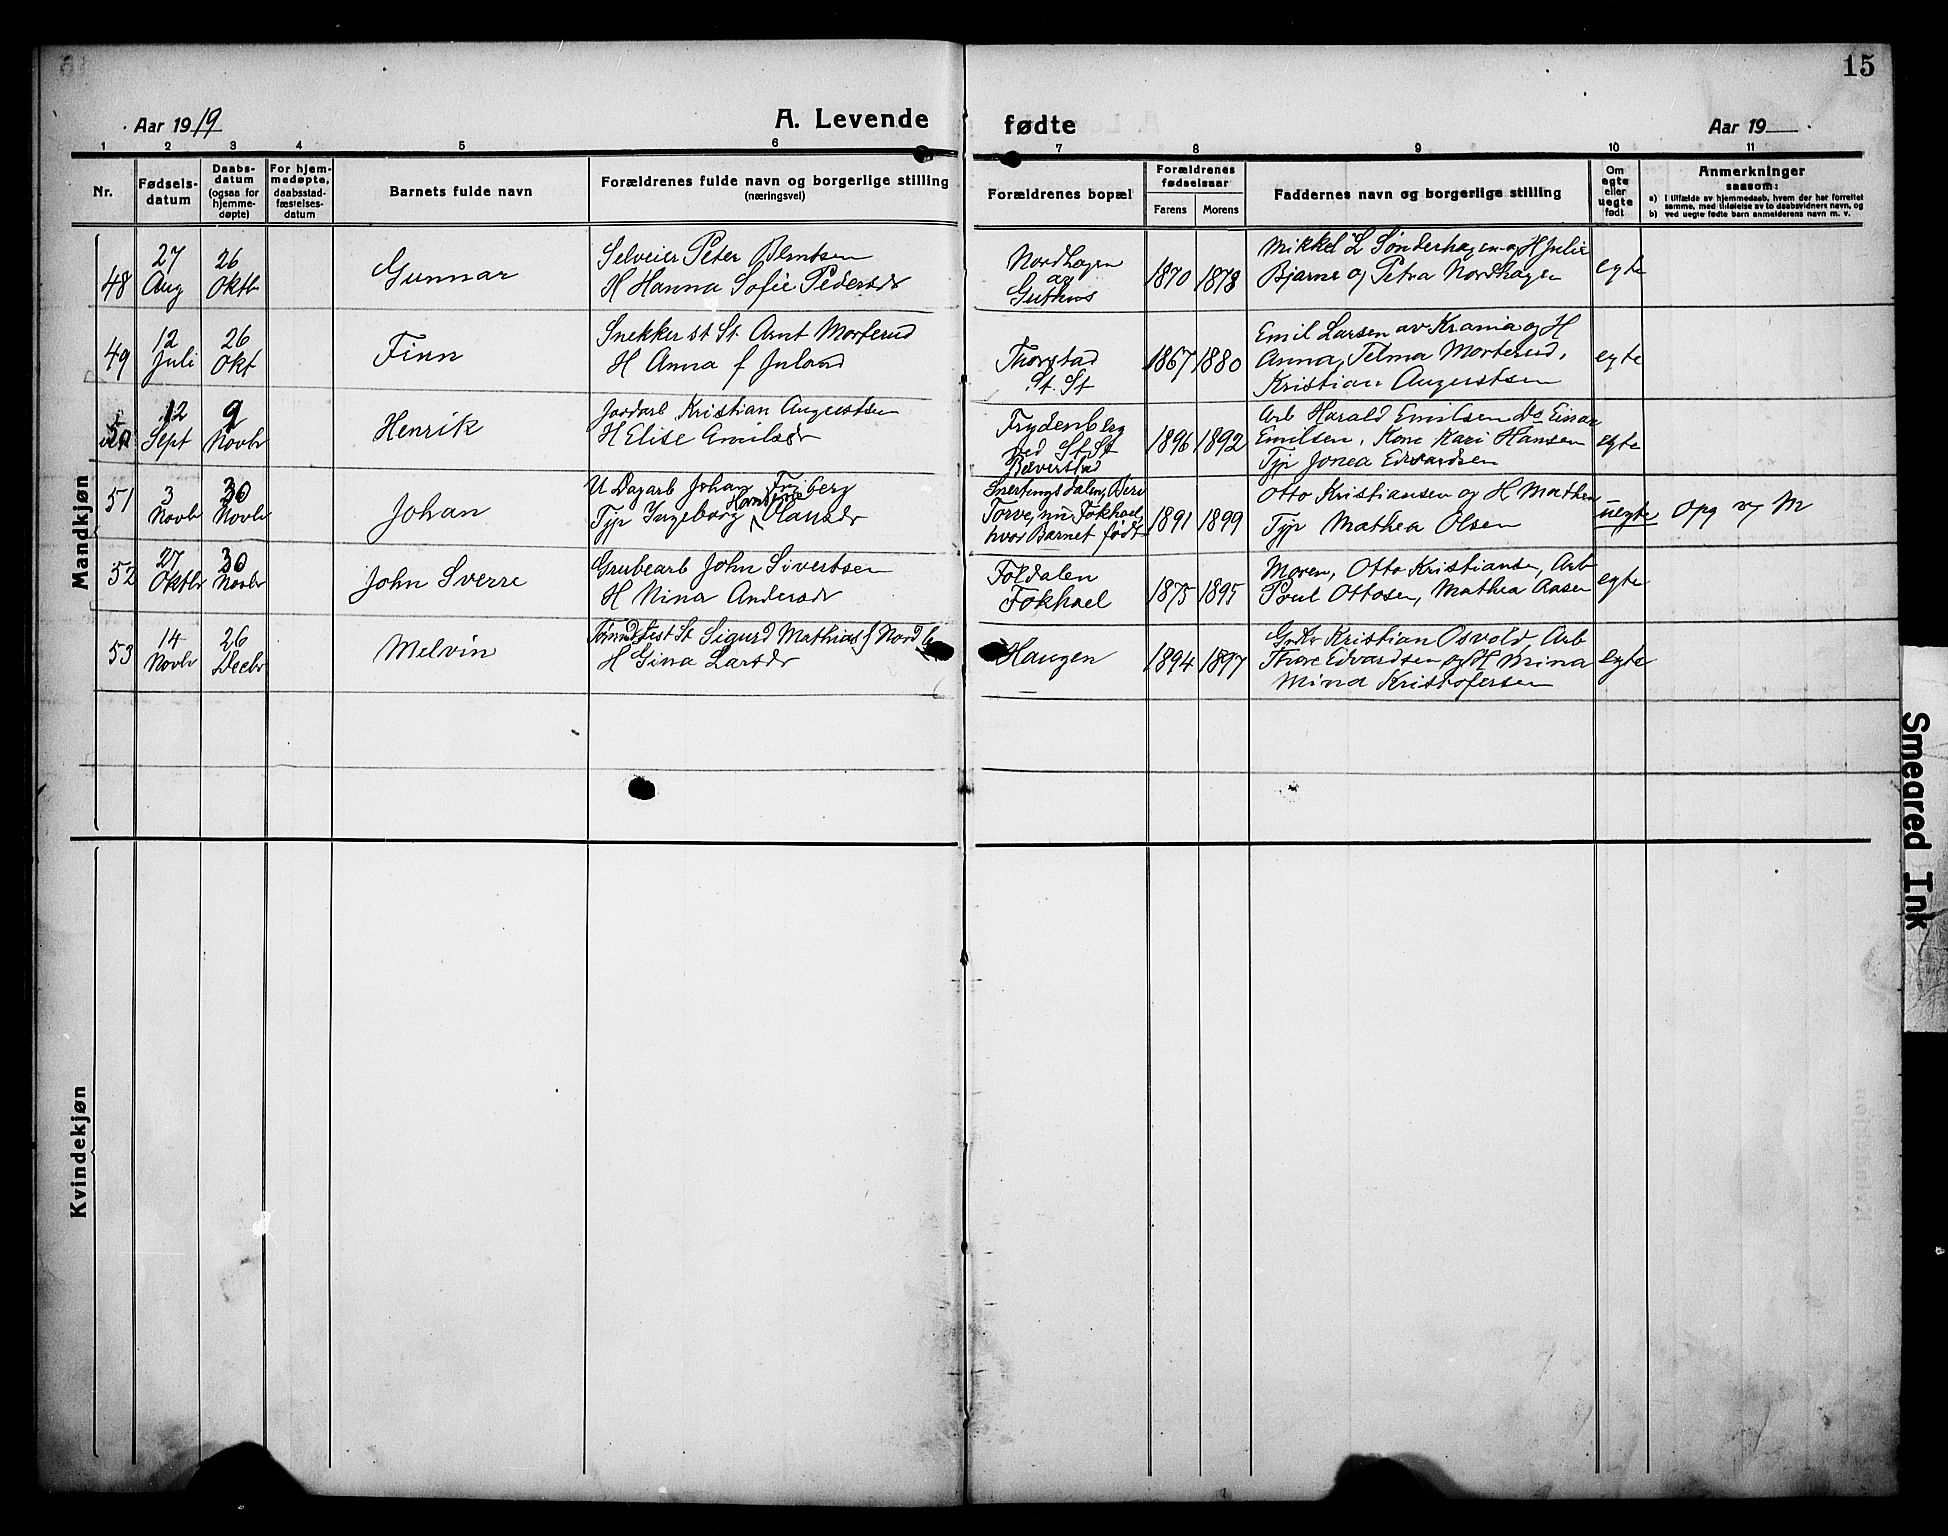 15
Aar 1919
A. Levende fødte
Aar 19
1 2 3 4 5 6 7 8 9 10 11
Nr.
Fødsels-
datum
Daabs-
datum
(ogsaa for
hjemme-
døpte)
For hjem-
medøpte,
daabsstad-
fæstelses-
datum
Barnets fulde navn
Forældrenes fulde navn og borgerlige stilling
(næringsvei)
Forældrenes bopæl
Forældrenes
fødselsaar
Farens Morens
Faddernes navn og borgerlige stilling
Om
egte
eller
uegte
født
Anmerkninger
saasom:
a) i tilfælde av hjemmedaab, hvem der har forrettet
samme, med tilføielse av to daabsvidners navn, og
b) ved uegte fødte barn anmelderens navn m. v.
Mandkjøn
48
27
Aug
26
Oktb
Gunnar
Selveier Peter Berntsen
H Hanna Sofie Pedersdr
Nordhagen
og
Guthus
1870 1878
Mikkel L Sønderhagen og H Julie
Bjarne og Petra Nordhagen
egte
49
12
Juli
26
Okt
Finn
Snekker st St. Arnt Morterud
H Anna f Juland
Thorstad
St. St
1867 1880
Emil Larsen av Krania og H
Anna, Telma Morterud,
Kristian Augustsen
egte
50
12
Sept
9
Novbr
Henrik
Jordarb Kristian Augustsen
H Elise Emilsdr
Frydenberg
ved St. St
Bæverstad
1896 1892
Arb Harald Emilsen Do Einar
Emilsen, Kone Kari Hansen
Typ Jonea Edvardsen
egte
51
3
Novbr
30
Novbr
Johan
U Dagarb Johan Friberg
Typ Ingeborg Hansine Olausdr
Snertingsdalen, Biri
Torve, nu Fokhoel,
hvor Barnet født
1891 1899
Otto Kristiansen og H Mathea
Typ Mathea Olsen
uegte
Opg v M
52
27
Oktbr
30
Novbr
John Sverre
Grubearb John Sivertsen
H Nina Andersdr
Foldalen
Fokhoel
1875 1895
Moren, Otto Kristiansen, Arb
Poul Ottosen, Mathea Aasen
egte
53
14
Novbr
26
Decbr
Melvin
St Sigurd Mathias f Nord
H Gina Larsdr
Haugen
1894 1897
Kristian Osvold, Arb
Thore Edvardsen og H Mina
Mina Kristofersen
egte
Kvindekjøn
Smeared Ink